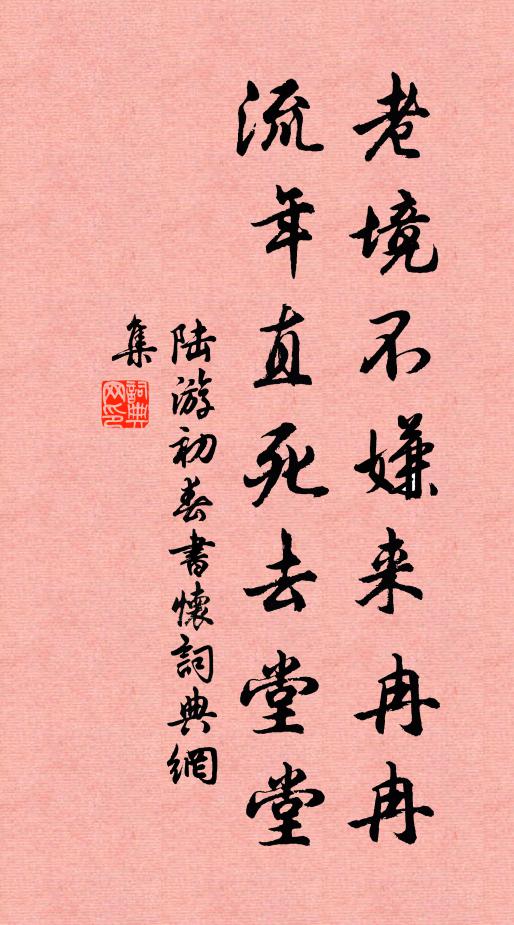 老境不嫌来冉冉
流年直死去堂堂
陆游初春書懷詞典網
集
詞典網印